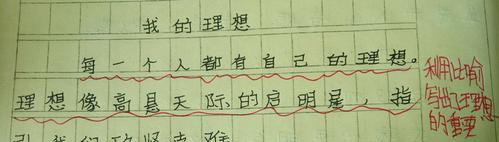 我的理想
每一个人都有自己的理想。
理想像高悬天际的启明星，指
利用比喻
写出了理想
的重要